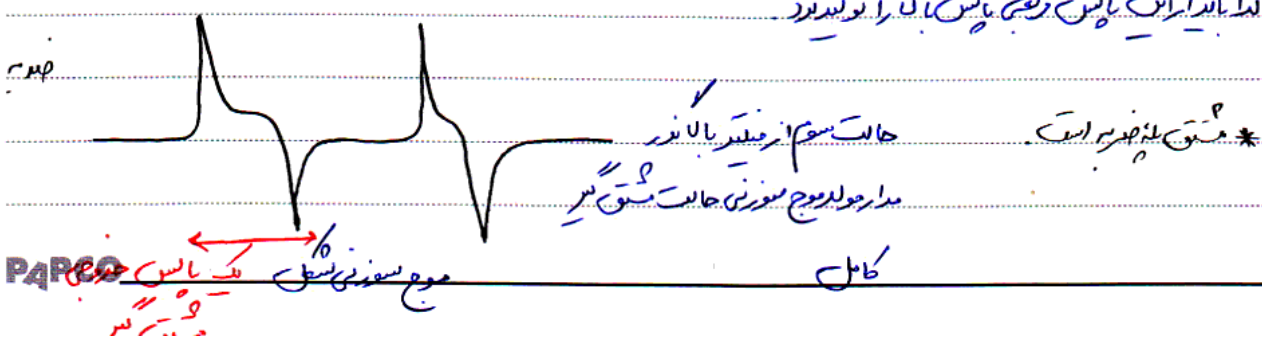 لذا باید از این پالس مربعی پالس بالا را تولید کرد.
ضربه
* مشتق پله ضربه است.
حالت سوم از فیلتر بالاگذر
مدار مولد موج سوزنی حالت مشتق گیر
کامل
موج سوزنی شکل
یک پالس خروجی
مشتق گیر
PAPCO